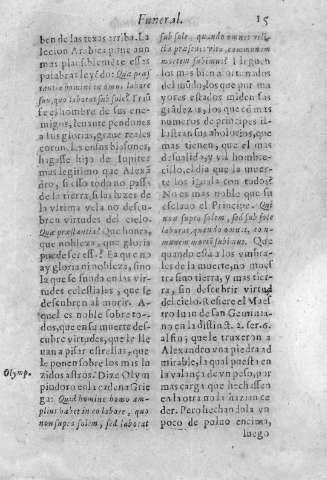 Funeral. 15
ben de las texas arriba. La
leccion Arabica pone aun
mas plausiblemēte essas
palabras leyẽdo: Quæ præs
tantia homini in omni labore
suo, quo laborat sub sole? Triū
fe el hombre de sus ene-
migos, leuante pendones
a sus glorias, graue reales
coronas en los blasones,
hagasse hijo de Iupiter
mas legitimo que Alexã
dro, si esso todo no passa
de la tierra, si las luzes de
la vltima vela no descu-
bren virtudes del cielo.
Quæ præstantia? Que honra,
que nobleza, que gloria
puede ser essa? Ea que no
ay gloria ni nobleza, sino
la que se funda en las vir
tudes celestiales, que se
descubren al morir. A-
quel es noble sobre to-
dos, que en su muerte des-
cubre virtudes, que le lle
uan a pisar estrellas, que
le ponen sobre los mas lu
zidos astros. Dize Olym
Olymp.
piodoro en la cadena Grie
ga: Quid homine homo am-
plius habet in eo labore, quo
non supra solem, sed laborat
sub sole, quando omnes vel-
mortem subimus? Lleguen
los mas bien afortunados
del mũdo, los que por ma
yores estados miden las
grãdezas, los que cõ mas
numeros de principes il-
lustran sus abolorios, que
mas tienen, que el mas
desualido, y vil hombre-
cillo, el dia que la muer-
te los iguala con todos?
No es mas noble que su
esclauo el Principe. Qui
non supra solem, sed sub sole
laborat, quando omnes, com-
munem mortẽ subimus. Que
quando està a los vmbra-
les de la muerte, no mues
tra sino tierra, y mas tier-
ra, sin descubrir virtud
del cielo. Refiere el Maes
tro Iuan de san Geminia-
no en la distinct. 2. ser. 6.
al fin; que le truxeron a
Alexandro vna piedra ad
mirable, la qual puesta en
la valança de vn peso, por
mas carga que hechassen
en la otra no la hazian ce-
der. Pero hechandola vn
poco de poluo encima,
luego